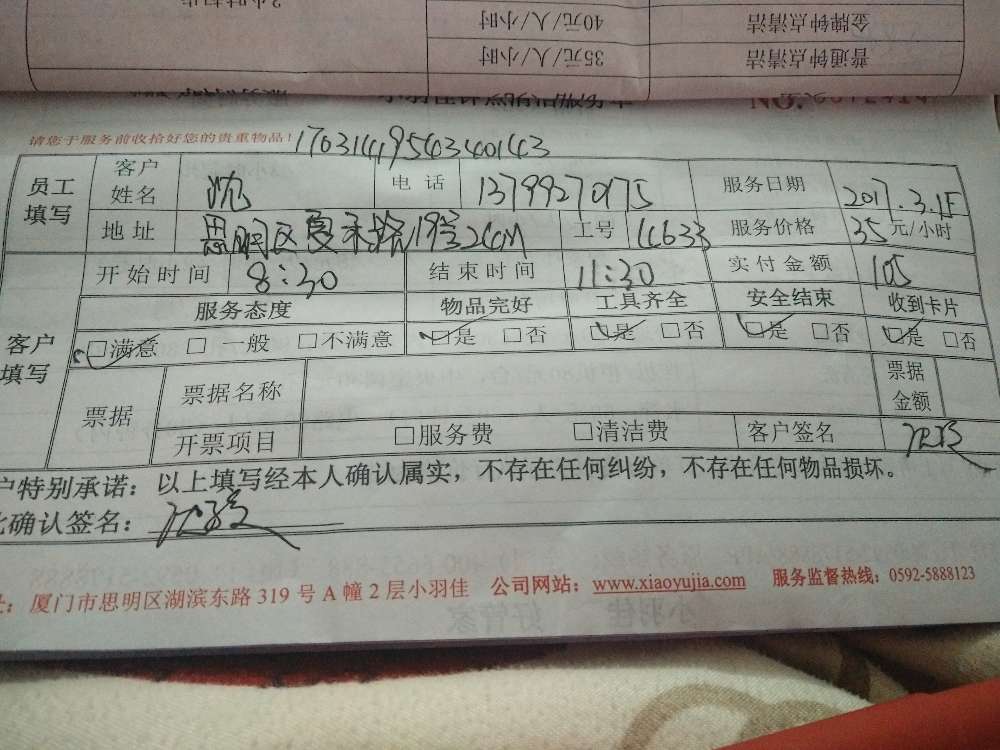 2小时起步
40元/人/小时 金牌钟点清洁
35元/人/小时 普通钟点清洁
请您于服务前收拾好您的贵重物品!
员工填写 客户姓名 沈 电话 服务日期
地址 思明区 工号 服务价格 35元/小时
客户填写 开始时间 8:30 结束时间 11:30 实付金额 105
服务态度 物品完好 工具齐全 安全结束 收到卡片
□满意 □一般 □不满意 □是 □否 □是 □否 □是 □否 □是 □否
票据 票据名称 票据金额
开票项目 □服务费 □清洁费 客户签名
户特别承诺:以上填写经本人确认属实,不存在任何纠纷,不存在任何物品损坏。
比确认签名:
址:厦门市思明区湖滨东路 319 号 A 幢 2 层小羽佳 公司网站:www.xiaoyujia.com 服务监督热线:0592-5888123